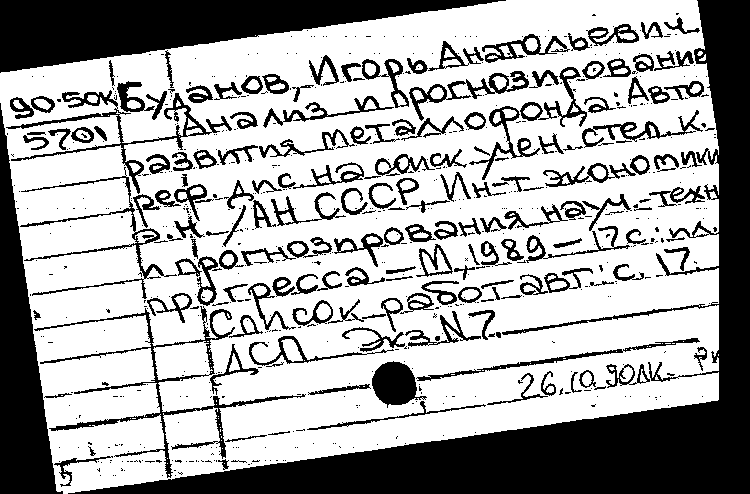 90-50К Буданов, Игорь Анатольевич
5701 Анализ и прогнозирование
развития металлофонда: Авто
реф. дис. на соиск. учен. степ. к.
э.н. / АН СССР, Ин-т экономики
и прогнозирования науч.-техн.
прогресса. – М., 1989. – 17 с.: ил.
Список работ авт.: с. 17.
ДСП Экз. N 7.
26.10.90 ЛК.
5